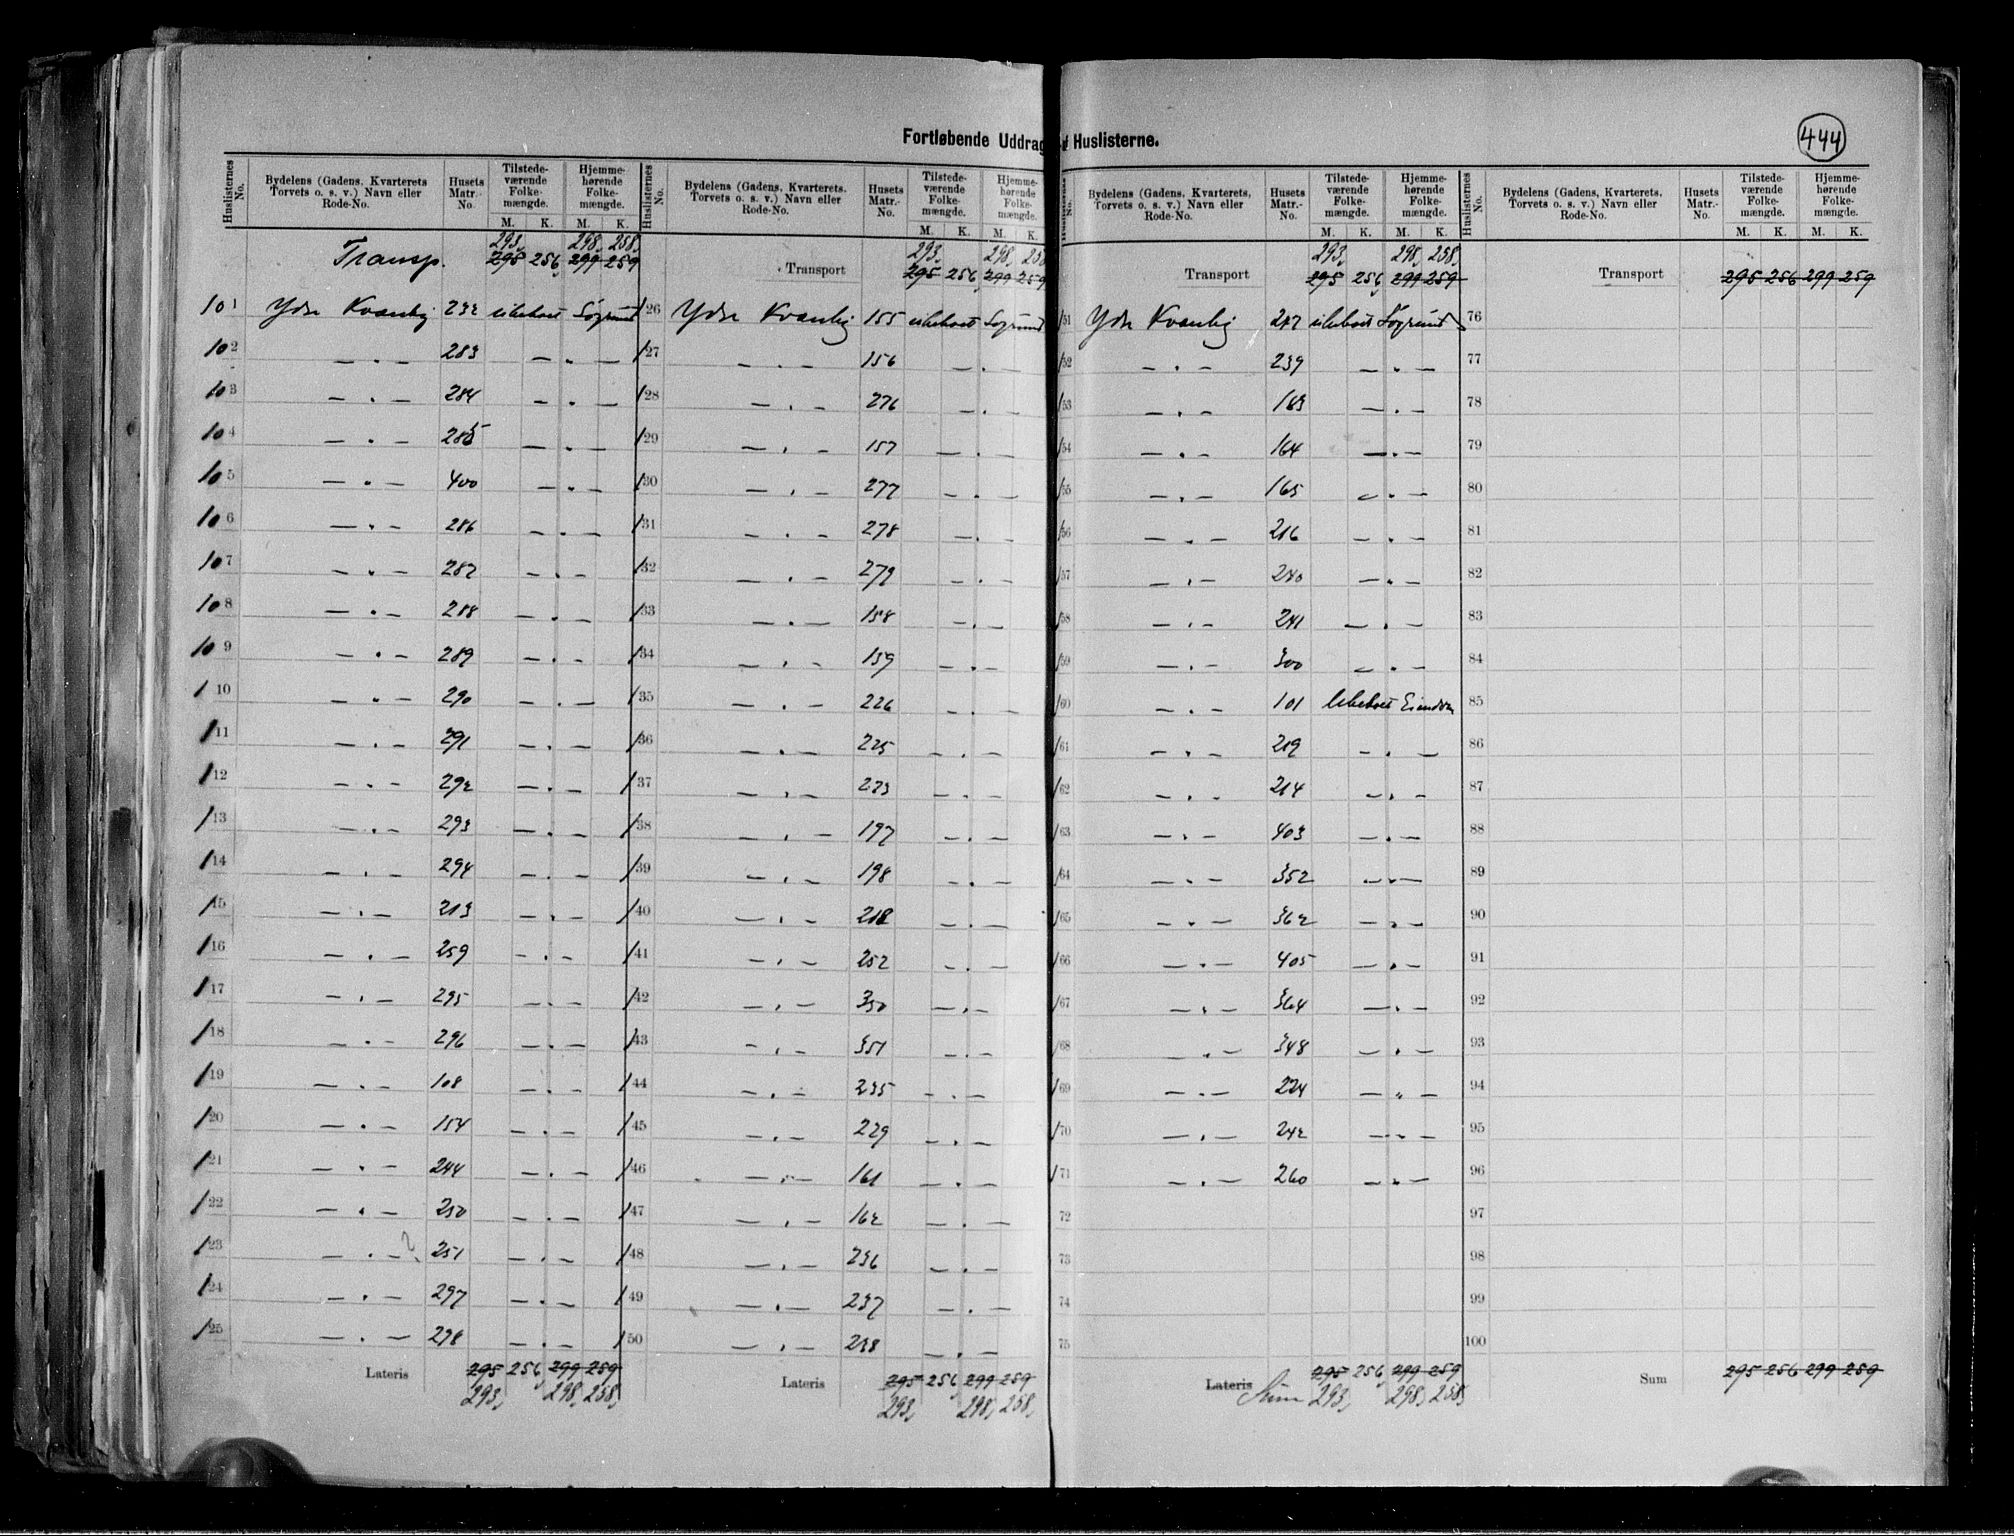 444
Fortløbende Uddrag af Huslisterne.
Huslisternes No.
Bydelens (Gadens, Kvarterets Torvets o. s. v.) Navn eller Rode-No.
Husets Matr.-No.
Tilstede-værende Folke-mængde.
Hjemme-hørende Folke-mængde.
M. K. M. K.
293, 298, 258,
Transp. 295 256, 299 259
101 Ydre Kvanby 232 ubeboet
102 — " — 283 — " —
103 — " — 284 — " —
104 — " — 285 — " —
105 — " — 400 — " —
106 — " — 286 — " —
107 — " — 287 — " —
108 — " — 288 — " —
109 — " — 289 — " —
110 — " — 290 — " —
111 — " — 291 — " —
112 — " — 292 — " —
113 — " — 293 — " —
114 — " — 294 — " —
115 — " — 213 — " —
116 — " — 259 — " —
117 — " — 295 — " —
118 — " — 296 — " —
119 — " — 108 — " —
120 — " — 154 — " —
121 — " — 244 — " —
122 — " — 250 — " —
123 — " — 251 — " —
124 — " — 297 — " —
125 — " — 298 — " —
Lateris 295 256, 299 259
293, 298, 258,
Huslisternes No.
Bydelens (Gadens, Kvarterets. Torvets o. s. v.) Navn eller Rode-No.
Husets Matr.-No.
Tilstede-værende Folke-mængde.
Hjemme-hørende Folke-mængde.
M. K. M. K.
293, 298, 258
Transport 295 256, 299 259
126 Ydre Kvanby 155 ubeboet
127 — " — 156 — " —
128 — " — 276 — " —
129 — " — 157 — " —
130 — " — 277 — " —
131 — " — 278 — " —
132 — " — 279 — " —
133 — " — 158 — " —
134 — " — 159 — " —
135 — " — 226 — " —
136 — " — 225 — " —
137 — " — 223 — " —
138 — " — 197 — " —
139 — " — 198 — " —
140 — " — 218 — " —
141 — " — 252 — " —
142 — " — 350 — " —
143 — " — 351 — " —
144 — " — 235 — " —
145 — " — 229 — " —
146 — " — 161 — " —
147 — " — 162 — " —
148 — " — 236 — " —
149 — " — 237 — " —
150 — " — 238 — " —
Lateris 295 256, 299 259
293, 298, 258,
Huslisternes No.
Bydelens (Gadens, Kvarterets, Torvets o. s. v.) Navn eller Rode-No.
Husets Matr.-No.
Tilstede-værende Folke-mængde.
Hjemme-hørende Folke-mængde.
M. K. M. K.
293, 298, 258,
Transport 295 256, 299 259
151 Ydre Kvanby 217 ubeboet
152 — " — 239 — " —
153 — " — 163 — " —
154 — " — 164 — " —
155 — " — 165 — " —
156 — " — 216 — " —
157 — " — 240 — " —
158 — " — 241 — " —
159 — " — 300 — " —
160 — " — 101 Ubeboet Eiendom
161 — " — 219 — " —
162 — " — 214 — " —
163 — " — 403 — " —
164 — " — 352 — " —
165 — " — 362 — " —
166 — " — 405 — " —
167 — " — 364 — " —
168 — " — 348 — " —
169 — " — 224 — " —
170 — " — 242 — " —
171 — " — 260 — " —
72
73
74
75
Lateris 295 256, 299 259
Sum 293, 298, 258,
Huslisternes No.
Bydelens (Gadens, Kvarterets. Torvets o. s. v.) Navn eller Rode-No.
Husets Matr.-No.
Tilstede-værende Folke-mængde.
Hjemme-hørende Folke-mængde.
M. K. M. K.
Transport 295 256 299 259
76
77
78
79
80
81
82
83
84
85
86
87
88
89
90
91
92
93
94
95
96
97
98
99
100
Sum 295 256 299 259